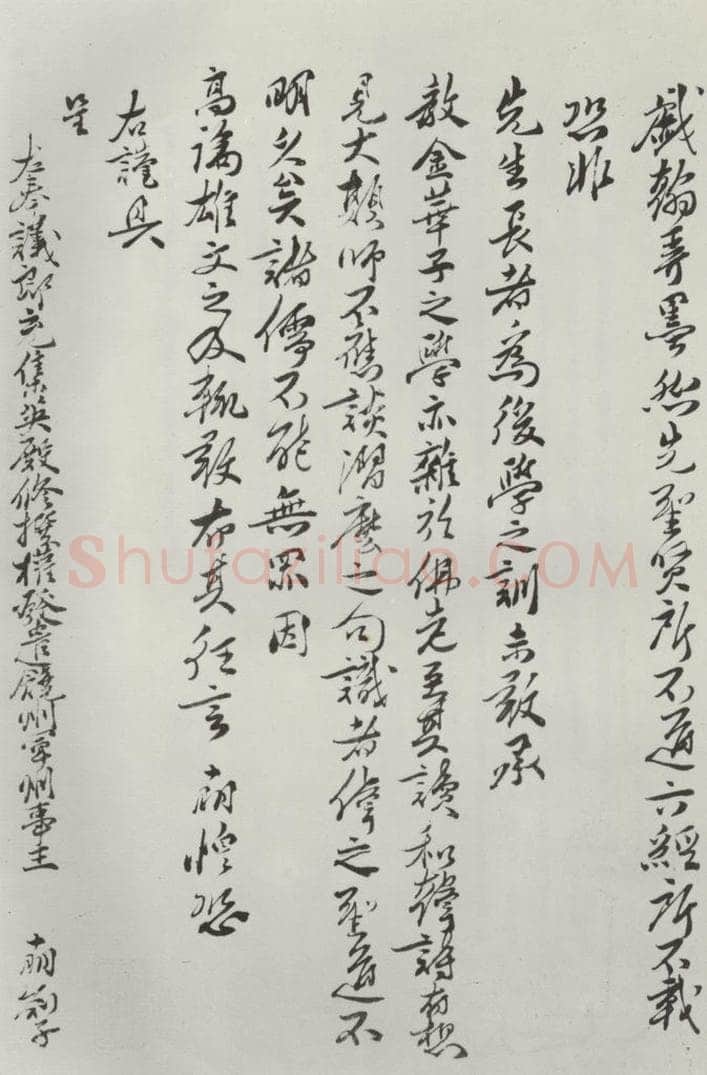 戲翰弄墨然先聖賢所不道六經所不載
恐非
先生長者為後學之訓未敢承
教金華子之學亦雜於佛老至其讀和韓詩有想
見大顛師不應談之句識者偉之聖道不
明久矣諸儒不能無累因
高論雄文之及輒敢布其狂言 十朋惶恐
右謹具
呈
左奉議郎充集英殿修撰權發遣饒州軍州事王 十朋劄子
Shufaziliao.COM